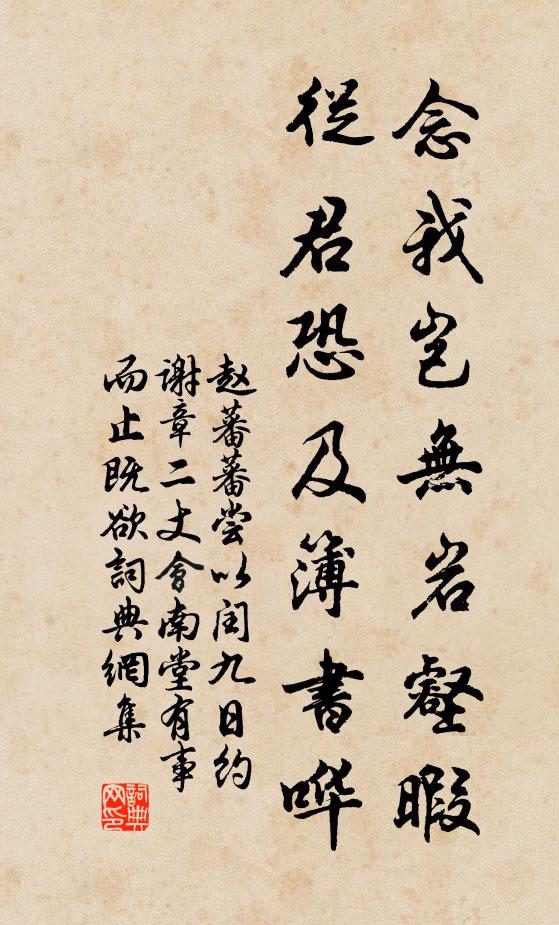 念我岂無岩壑暇
從君恐及簿書哗
赵蕃蕃尝以闰九日约
谢章二丈會南堂有事
而止既欲詞典網集
詞典网印